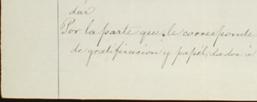 dar
Por la parte que le corresponde
de gratificacion y papel, dados á